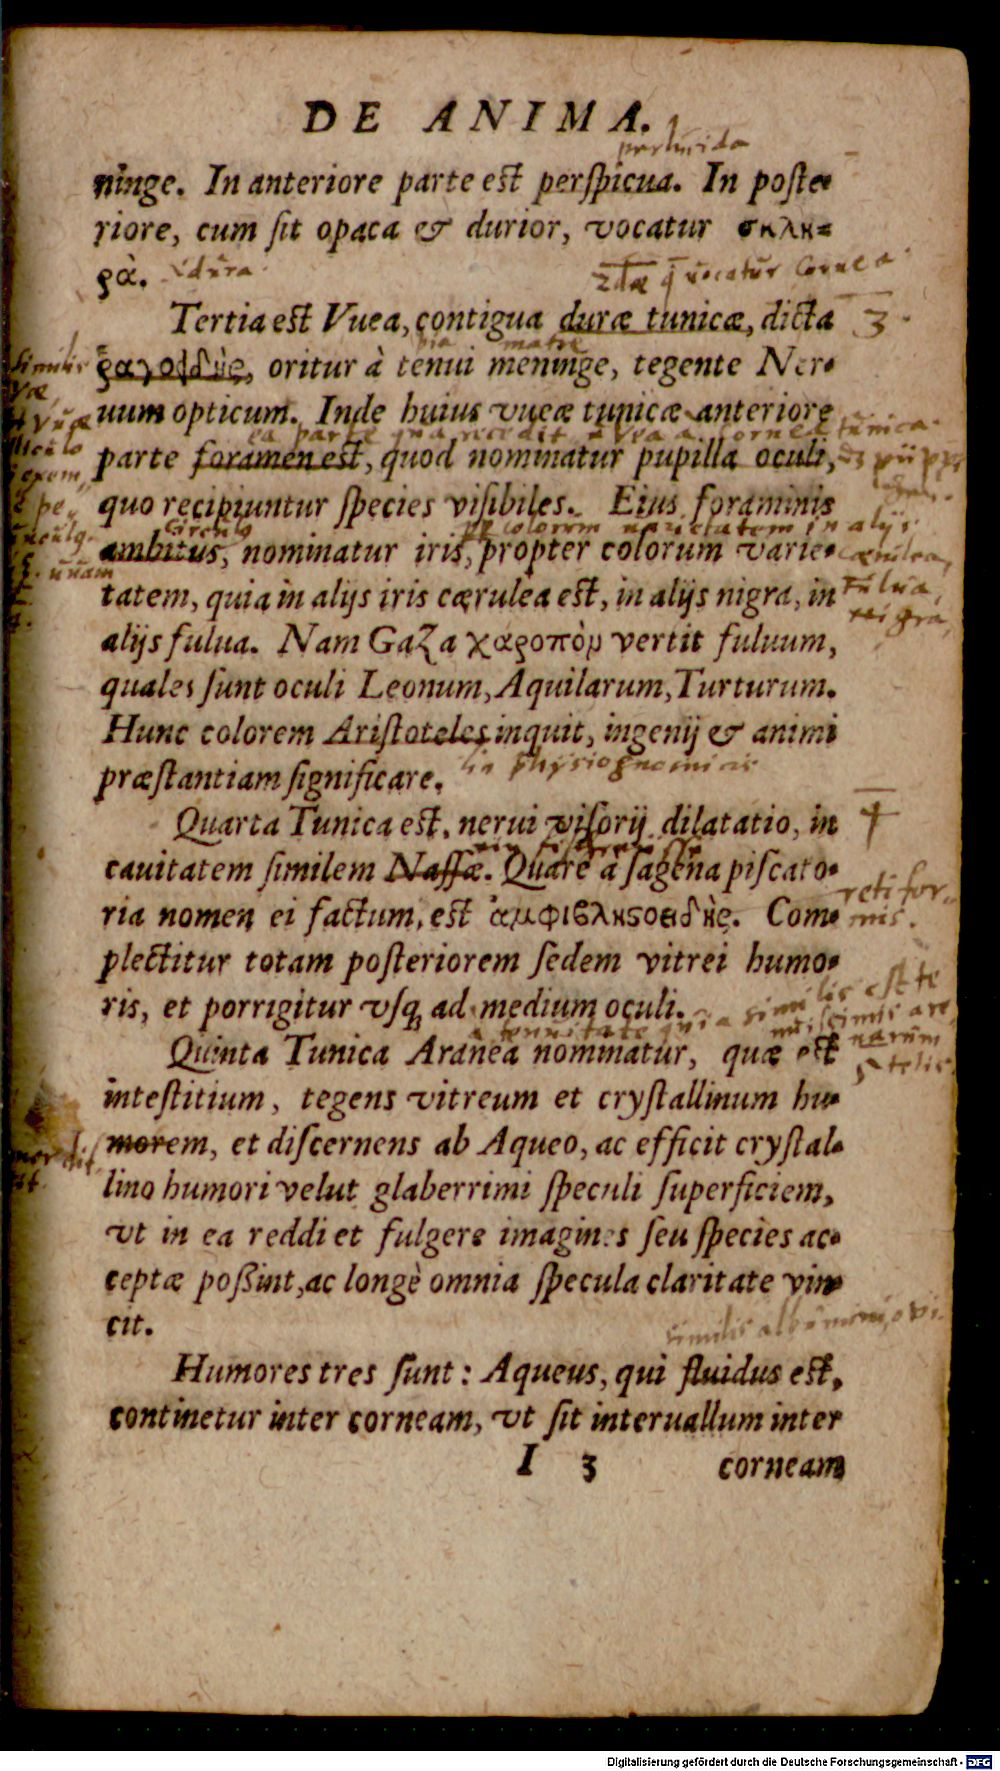 DE ANIMA.
perlucida
ninge. In anteriore parte est perspicua. In poste-
riore, cum sit opaca & durior, vocatur σκλη=
ρὰ. dura
vocatur Cornea
Tertia est Vuea, contigua duræ tunicæ, dicta
3.
pia matre
ῥαγοειδὴς, oritur à tenui meninge, tegente Ner-
similis
uum opticum. Inde huius vueæ tunicæ anteriore
ea parte qua recedit cornea tunica
parte foramen est, quod nominatur pupilla oculi,
quo recipiuntur species visibiles. Eius foraminis
Circulo
colorum varietatem in alijs
ambitus, nominatur iris, propter colorum varie-
cærulea,
unam
tatem, quia in alijs iris cærulea est, in alijs nigra, in
fulua,
nigra,
alijs fulua. Nam Gaza χαροπὸν vertit fuluum,
quales sunt oculi Leonum, Aquilarum, Turturum.
Hunc colorem Aristoteles inquit, ingenij & animi
in physiognomicis
præstantiam significare.
4
Quarta Tunica est, nerui visorij dilatatio, in
cauitatem similem Nassæ. Quare a sagena piscato-
retifor-
ria nomen ei factum est ἀμφιβληστοειδὴς. Com-
mis.
plectitur totam posteriorem sedem vitrei humo-
ris, et porrigitur vsq; ad medium oculi.
a tenuitate quia similis est te
nuissimis are
narum
telis
Quinta Tunica Aranea nominatur, quæ est
intestitium, tegens vitreum et crystallinum hu-
morem, et discernens ab Aqueo, ac efficit crystal-
lino humori velut glaberrimi speculi superficiem,
vt in ea reddi et fulgere imagines seu species ac-
ceptæ poßint, ac longè omnia specula claritate vin-
cit.
similis albumini ovi
Humores tres sunt: Aqueus, qui fluidus est,
continetur inter corneam, vt sit interuallum inter
I 3 corneam
Digitalisierung gefördert durch die Deutsche Forschungsgemeinschaft - DFG